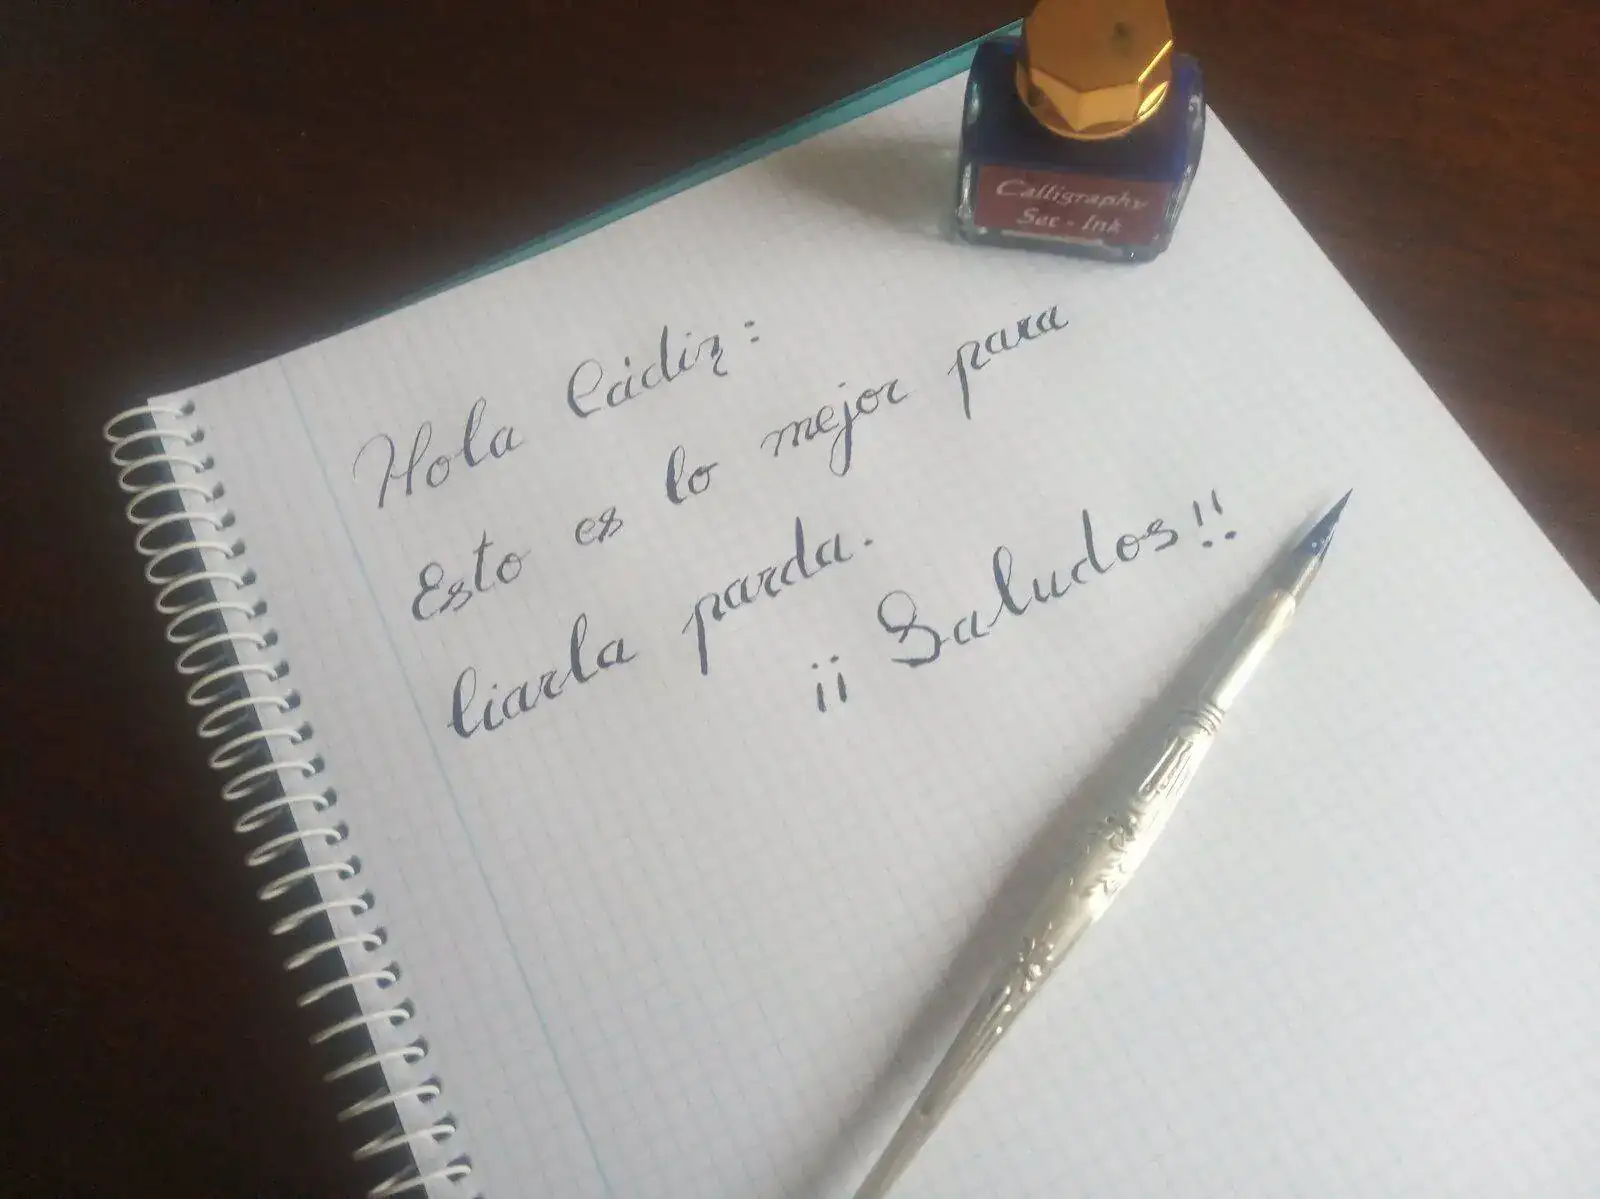 Calligraphy
Set - Ink
Hola Cádiz:
Esto es lo mejor para
liarla parda.
¡¡ Saludos!!